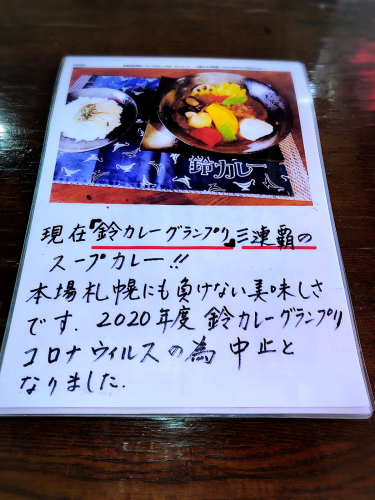 鈴カレー
現在『鈴カレーグランプリ』三連覇の
スープカレー!!
本場札幌にも負けない美味しさ
です. 2020年度 鈴カレーグランプリ
コロナウィルスの為 中止と
なりました.